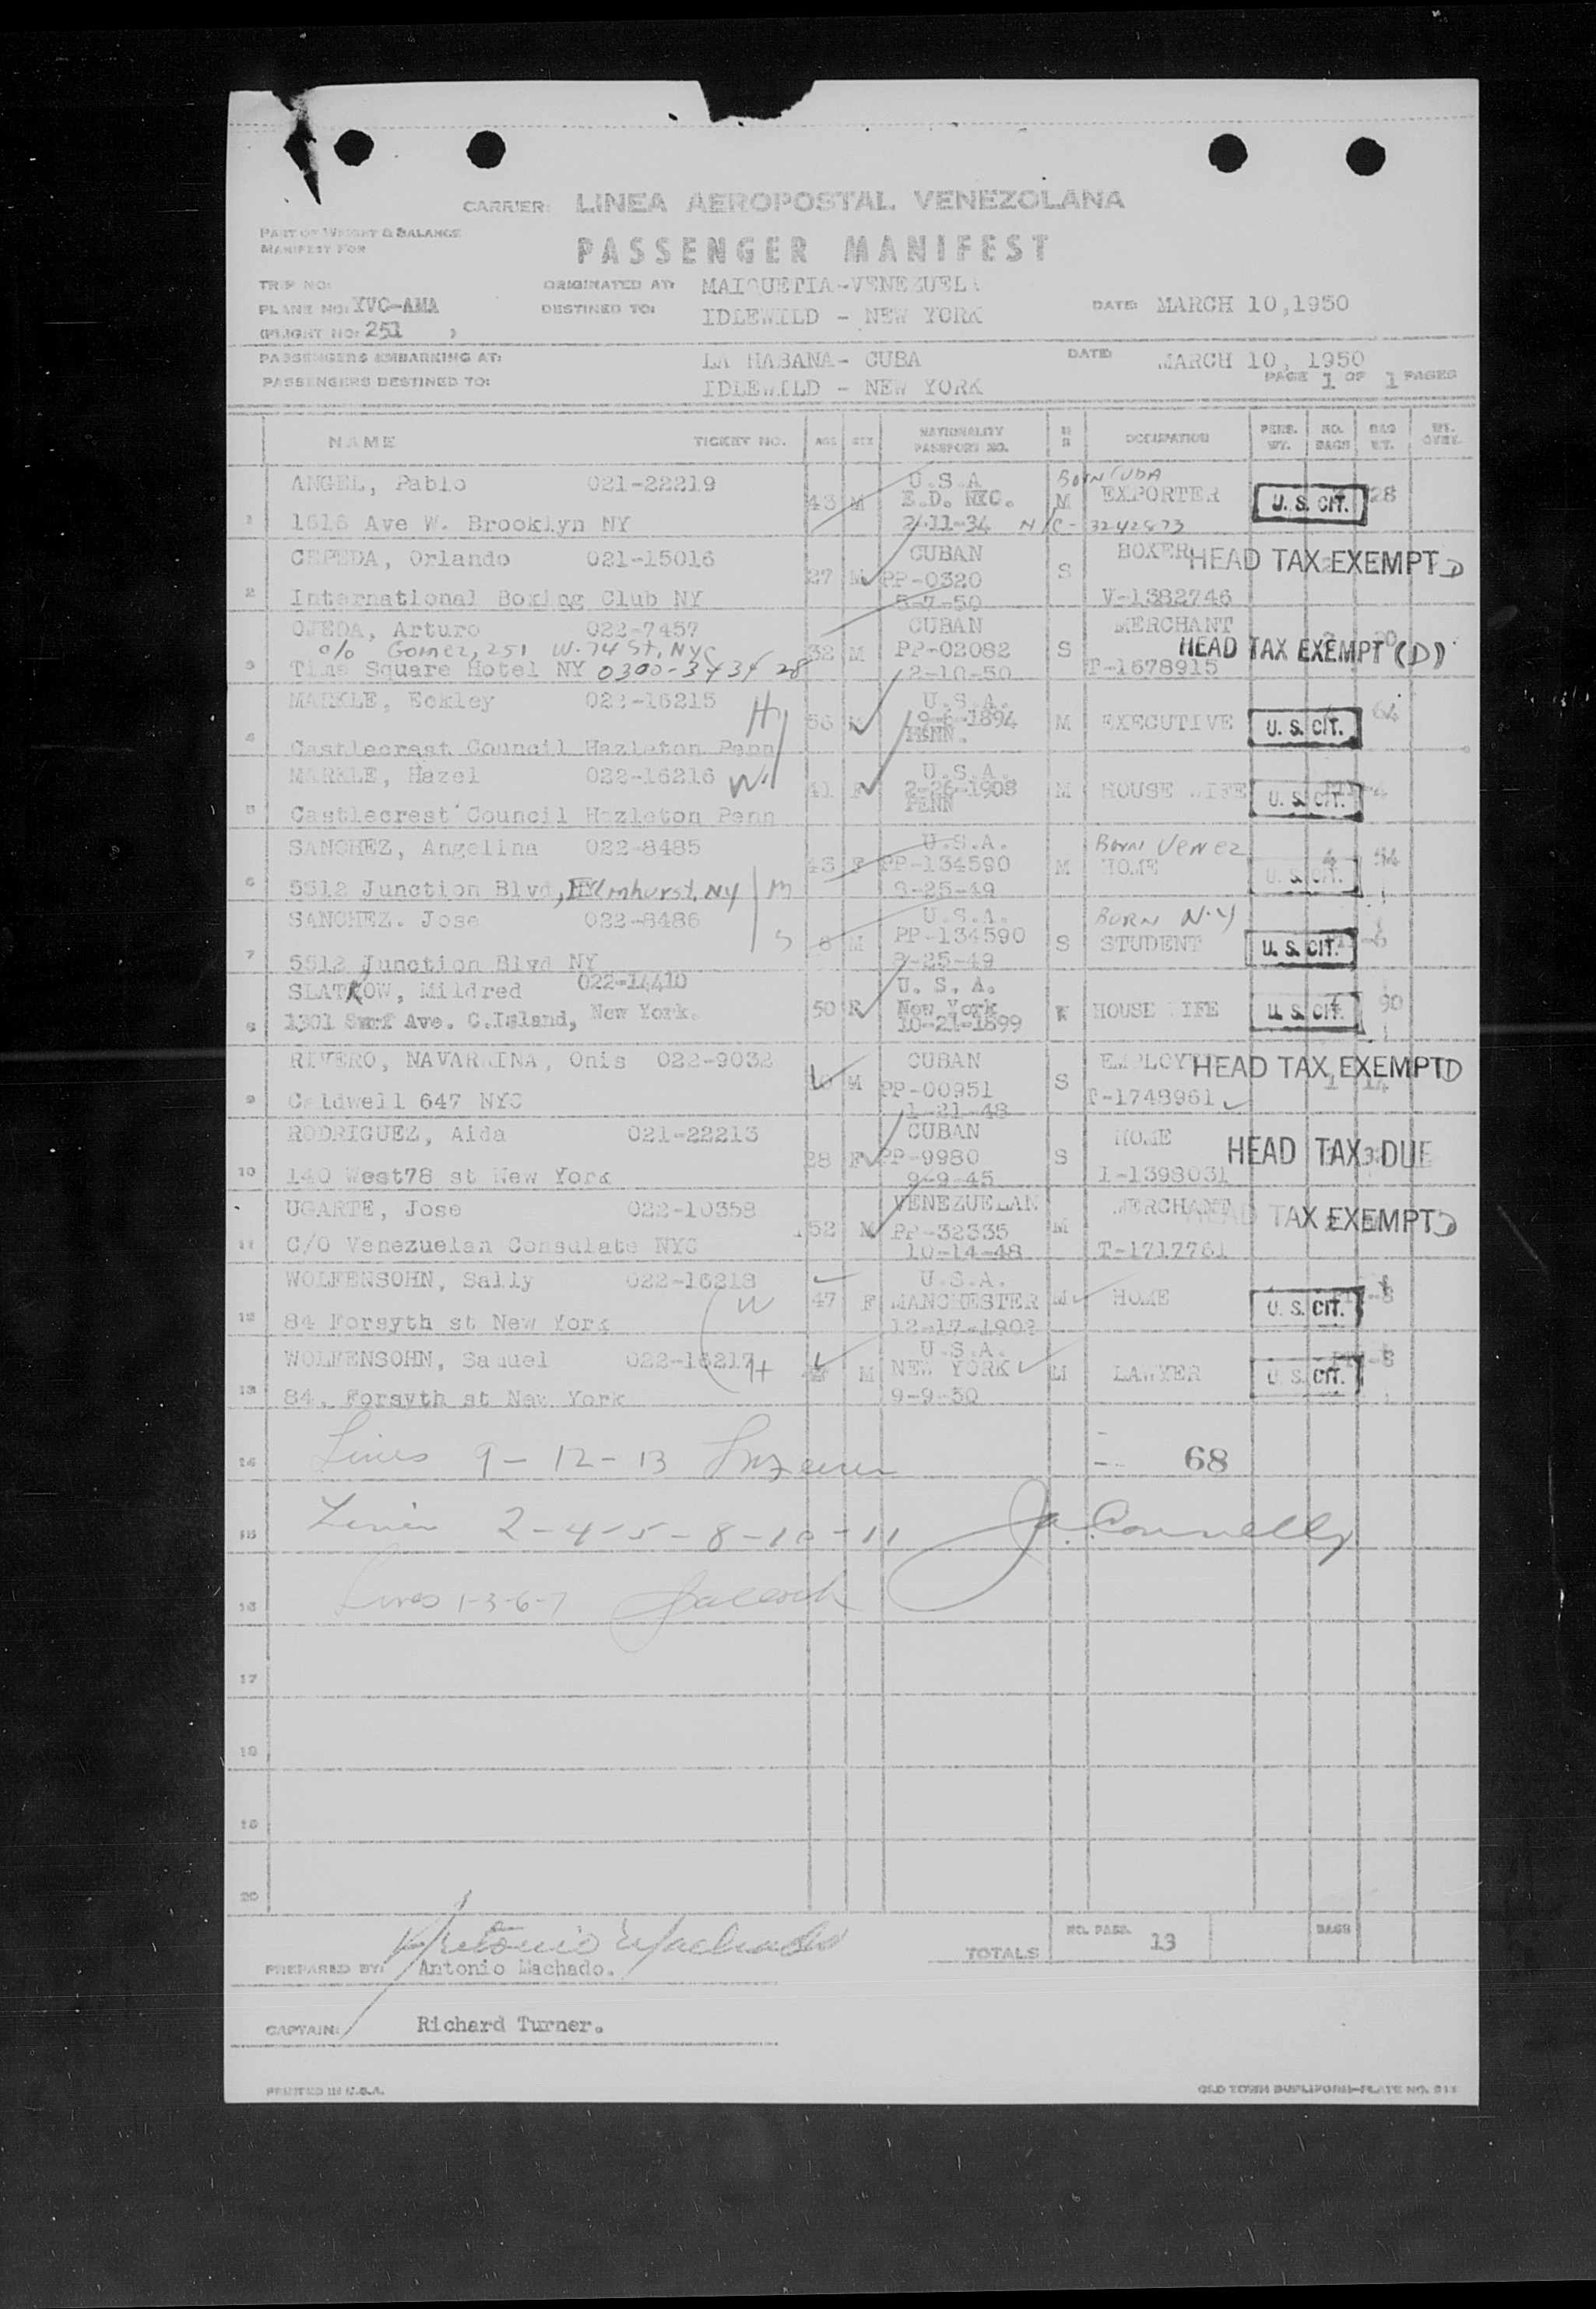 CARRIER: LINEA AEROPOSTAL VENEZOLANA
PART OF WEIGHT & BALANCE
MANIFEST FOR
PASSENGER MANIFEST
TRIP NO:
ORIGINATED AT: MAIQUETIA-VENEZUELA
PLANE NO: YVC-AMA
DESTINED TO: IDLEWILD - NEW YORK
DATE: MARCH 10,1950
(FLIGHT NO: 251 )
PASSENGERS EMBARKING AT: LA HABANA- CUBA
DATE MARCH 10, 1950
PASSENGERS DESTINED TO: IDLEWILD - NEW YORK
PAGE 1 OF 1 PAGES
NAME TICKET NO. AGE SEX NATIONALITY PASSPORT NO. M S OCCUPATION PERS. WT. NO. BAGS BAG WT. WT. OVER.
ANGEL, Pablo 021-22219 U.S.A BORN CUBA
43 M E.D. NYC. M EXPORTER U. S. CIT. 28
1 1616 Ave W. Brooklyn NY 2-11-34 N/C- 3242873
CEPEDA, Orlando 021-15016 CUBAN BOXER HEAD TAX EXEMPT D
27 M PP-0320 S
2 International Boxing Club NY 3-7-50 V-1382746
OJEDA, Arturo 022-7457 CUBAN MERCHANT
c/o Gomez, 251 W. 74 St, NYC 32 M PP-02082 S HEAD TAX EXEMPT (D)
3 Time Square Hotel NY 0300-3434 28 2-10-50 T-1678915
MARKLE, Eckley 022-16215 H U.S.A.
56 M 9-6-1894 M EXECUTIVE U. S. CIT. 64
4 Castlecrest Council Hazleton Penn PENN.
MARKLE, Hazel 022-16216 W U.S.A.
41 F 2-26-1908 M HOUSE WIFE U. S. CIT.
5 Castlecrest Council Hazleton Penn PENN
SANCHEZ, Angelina 022-8485 U.S.A. Born Venez
43 F PP-134590 M HOME U. S. CIT. 4
6 5512 Junction Blvd, Elmhurst, NY M 8-25-49
SANCHEZ. Jose 022-8486 U.S.A. BORN N.Y
S 8 M PP-134590 S STUDENT U. S. CIT.
7 5512 Junction Blvd NY 8-25-49
SLATKOW, Mildred 022-14410 U. S. A.
50 F New York HOUSE WIFE U. S. CIT. 90
8 1301 Surf Ave. C.Island, New York. 10-21-1899
RIVERO, NAVARMINA, Onis 022-9032 CUBAN HEAD TAX EXEMPT D
M PP-00951 S 1 14
9 Caldwell 647 NYC 1-21-48 T-1748961
RODRIGUEZ, Aida 021-22213 CUBAN HOME
28 F PP-9980 S HEAD TAX DUE
10 140 West78 st New York 9-9-45 I-1398031
UGARTE, Jose 022-10358 VENEZUELAN MERCHANT HEAD TAX EXEMPT D
52 M PP-32335 M
11 C/O Venezuelan Consulate NYC 10-14-48 T-1717761
WOLFENSOHN, Sally 022-16218 U.S.A.
W 47 F MANCHESTER M HOME U. S. CIT.
12 84 Forsyth st New York 12-17-1902
WOLFENSOHN, Samuel 022-16217 H U.S.A.
M NEW YORK M LAWYER U. S. CIT.
13 84. Forsyth st New York 9-9-50
14 Lines 9 - 12 - 13 68
15 Lines 2 - 4 - 5 - 8 - 10 - 11 Ja. Connelly
16 Lines 1-3-6-7
17
18
19
20
Antonio Machado
TOTALS NO. PASS. 13 BAGS
PREPARED BY: Antonio Machado.
CAPTAIN: Richard Turner.
PRINTED IN U.S.A.
OLD TOWN DUPLIFORM-PLATE NO.